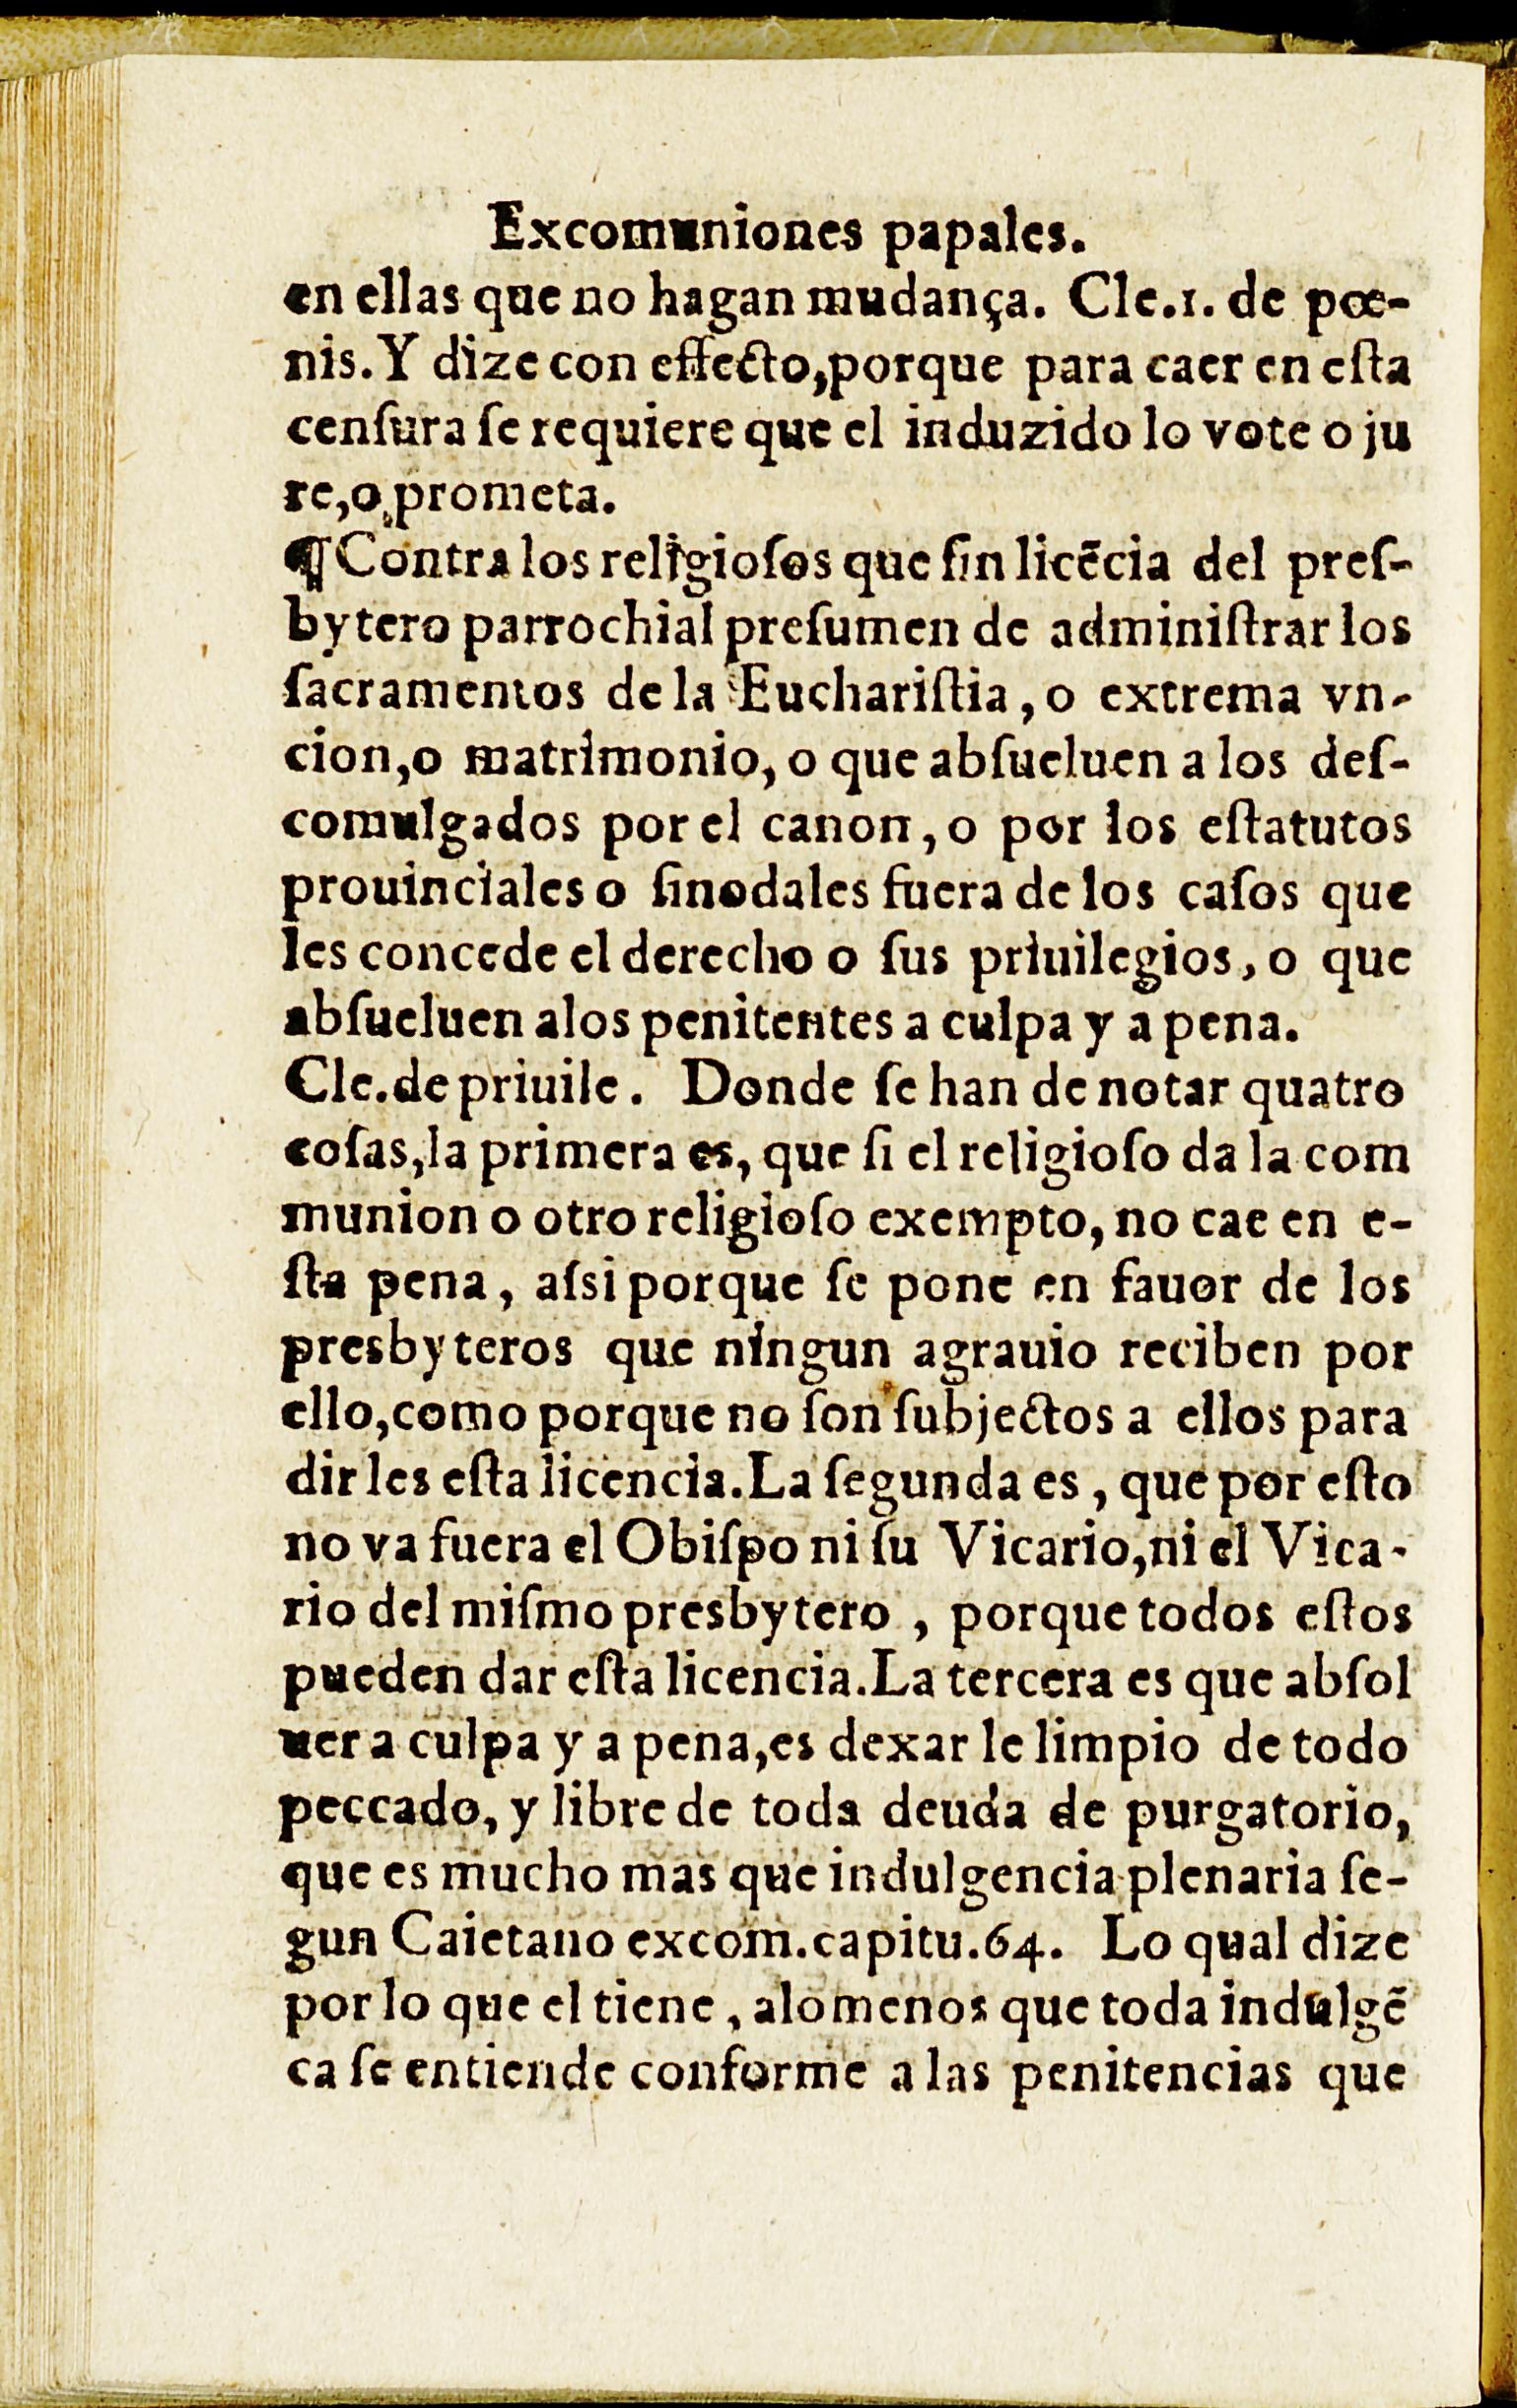 Excomuniones papales.
en ellas que no hagan mudança. Cle.1. de pœ-
nis. Y dize con effecto,porque para caer en eſta
cenſura ſe requiere que el induzido lo vote o ju
re,o prometa.
¶Contra los religioſos que ſin licẽcia del preſ-
bytero parrochial preſumen de adminiſtrar los
ſacramentos de la Euchariſtia, o extrema vn-
cion,o matrimonio, o que abſueluen a los deſ-
comulgados por el canon, o por los eſtatutos
prouinciales o ſinodales fuera de los caſos que
les concede el derecho o ſus priuilegios, o que
abſueluen alos penitentes a culpa y a pena.
Cle.de priuile. Donde ſe han de notar quatro
coſas,la primera es, que ſi el religioſo da la com
munion o otro religioſo exempto, no cae en e-
ſta pena, aſsi porque ſe pone en fauor de los
presbyteros que ningun agrauio reciben por
ello,como porque no ſon ſubjectos a ellos para
dir les eſta licencia.La ſegunda es, que por eſto
no va fuera el Obiſpo ni ſu Vicario,ni el Vica-
rio del miſmo presbytero, porque todos eſtos
pueden dar eſta licencia.La tercera es que abſol
uer a culpa y a pena,es dexar le limpio de todo
peccado, y libre de toda deuda de purgatorio,
que es mucho mas que indulgencia plenaria ſe-
gun Caietano excom.capitu.64. Lo qual dize
por lo que el tiene, alomenos que toda indulgẽ
ca ſe entiende conforme a las penitencias que